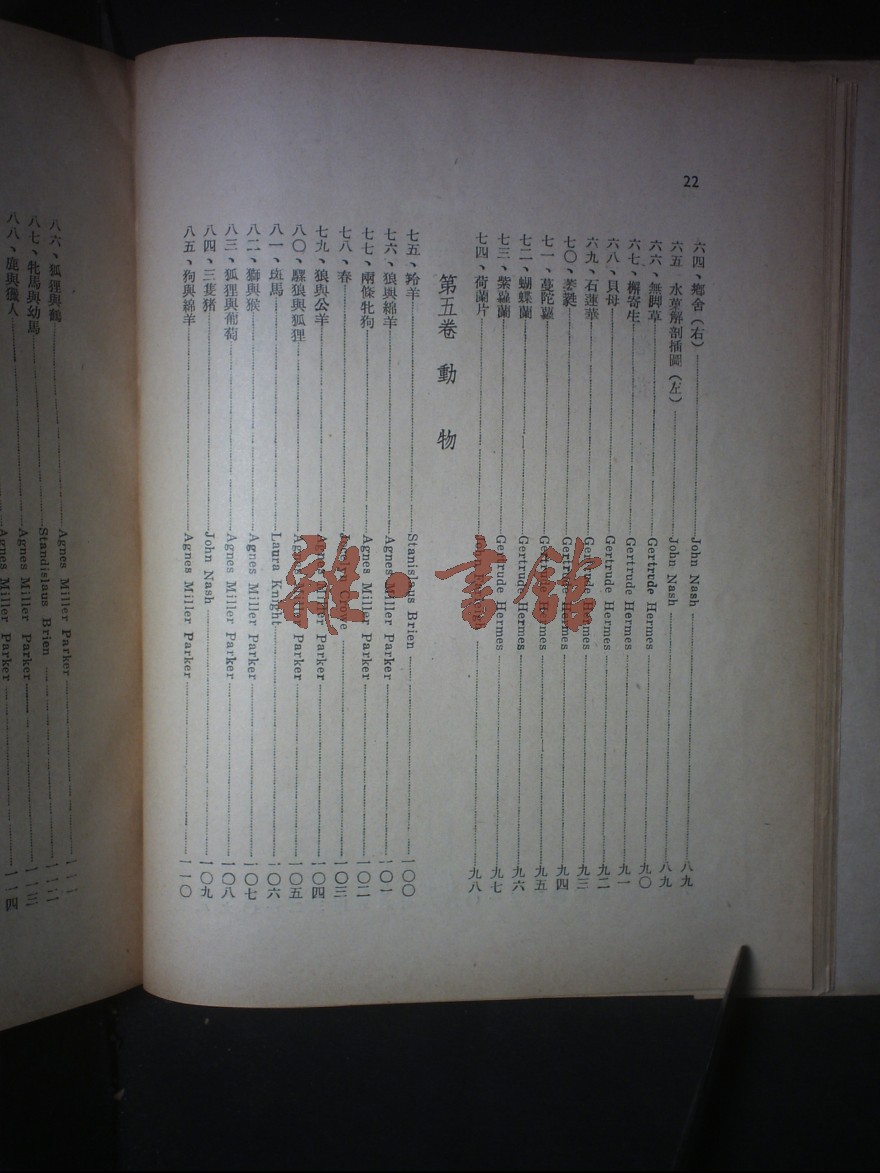 22
六四、鄉舍(右) John Nash 八九
六五、水菓解剖插圖(左) John Nash 八九
六六、無脚草 Gertrude Hermes 九〇
六七、檞寄生 Gertrude Hermes 九一
六八、貝母 Gertrude Hermes 九二
六九、石蓮華 Gertrude Hermes 九三
七〇、 Gertrude Hermes 九四
七一、蔓陀蘿 Gertrude Hermes 九五
七二、蝴蝶蘭 Gertrude Hermes 九六
七三、紫羅蘭 Gertrude Hermes 九七
七四、荷蘭片 九八
第五卷 動物
七五、羚羊 Stanislaus Brien 一〇〇
七六、狼與綿羊 Agnes Miller Parker 一〇一
七七、兩條牝狗 Agnes Miller Parker 一〇二
七八、春 Jocelyn Crowe 一〇三
七九、狼與公羊 Agnes Miller Parker 一〇四
八〇、騾狼與狐狸 Agnes Miller Parker 一〇五
八一、斑馬 Laura Knight 一〇六
八二、獅與猴 Agnes Miller Parker 一〇七
八三、狐狸與葡萄 Agnes Miller Parker 一〇八
八四、三隻豬 John Nash 一〇九
八五、狗與綿羊 Agnes Miller Parker 一一〇
八六、狐狸與鶴 Agnes Miller Parker 一一一
八七、牝馬與幼馬 Standislaus Brien 一一二
八八、鹿與獵人 Agnes Miller Parker 一一三
Agnes Miller Parker 一一四
雜·書館